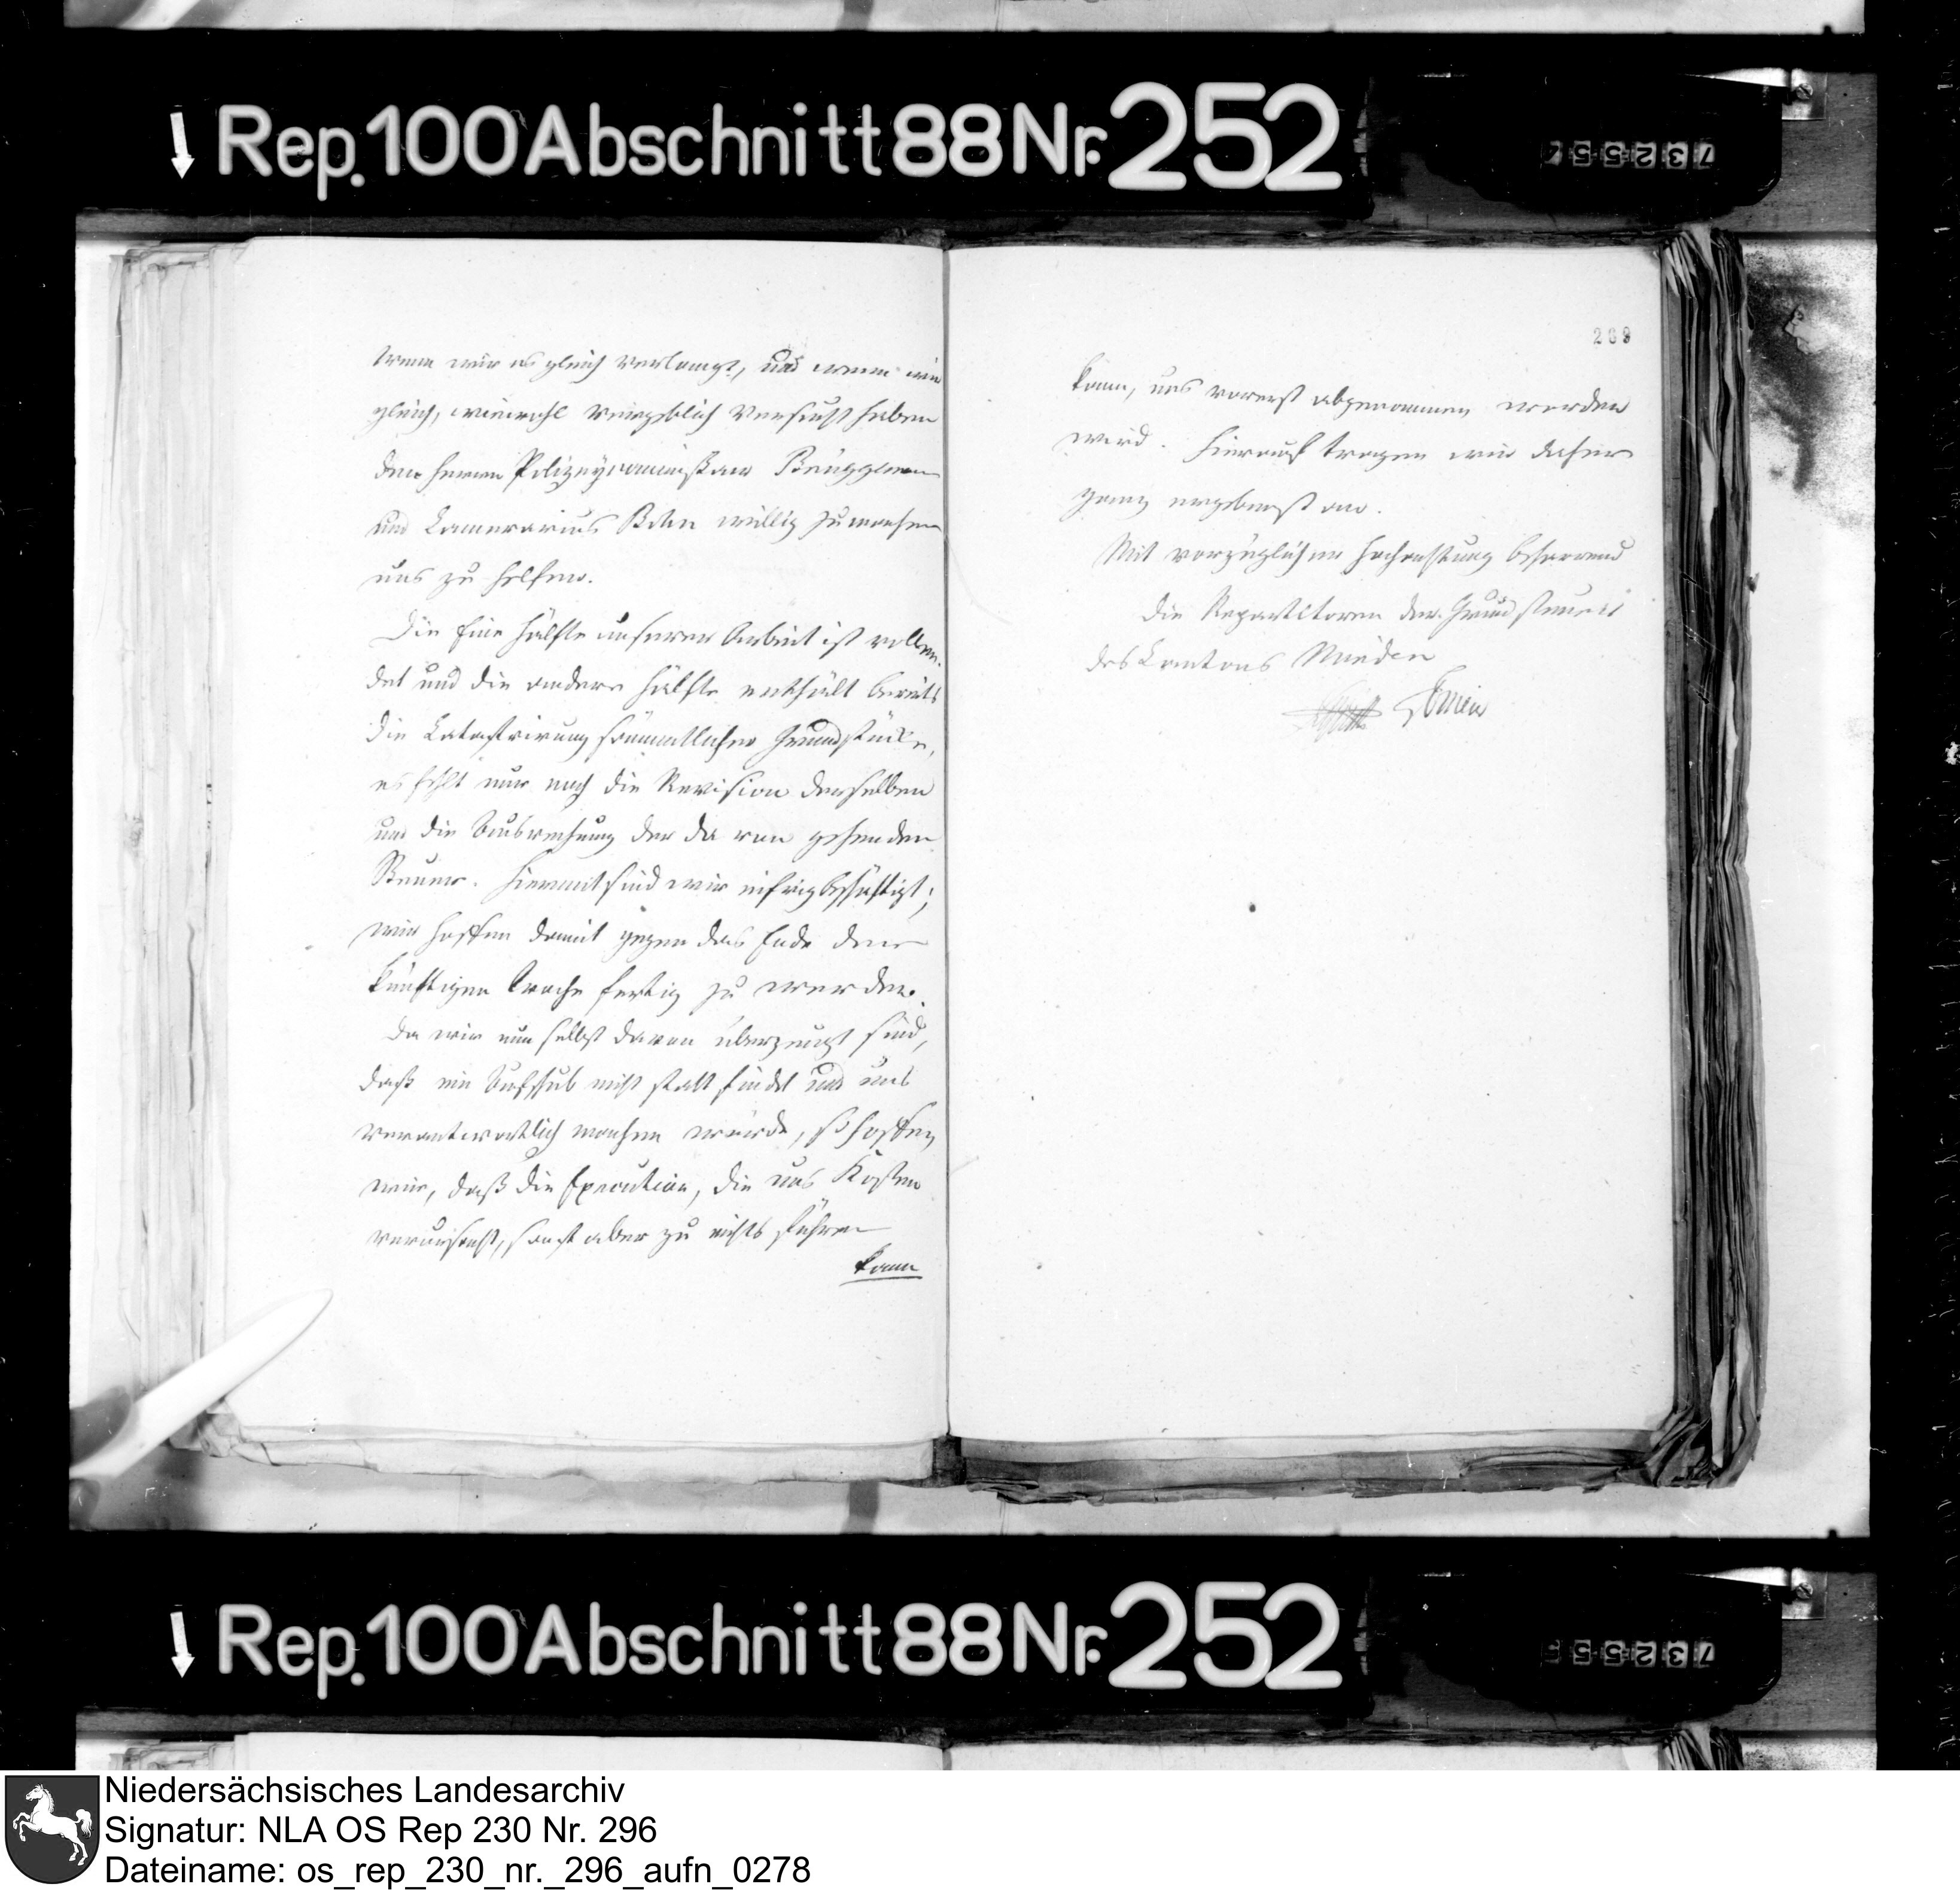 Rep. 100 Abschnitt 88 Nr. 252
73255
wenn wir es gleich verlangt, und wenn wir
gleich, wiewohl vergeblich versucht haben
den Herrn Polizeycommissair Brüggemann
und Camerarius Bohn willig zu machen
uns zu helfen.
Die Eine Hälfte unserer Arbeit ist vollen-
det und die andere Hälfte enthält bereits
die Catastrirung sämmtlicher Grundstücke,
es fehlt nur noch die Revision derselben
und die Ausrechnung der davon gehenden
Steuer. Hiermit sind wir eifrig beschäftigt;
wir hoffen damit gegen das Ende der
künftigen Woche fertig zu werden.
Da wir nun selbst davon überzeugt sind,
daß ein Aufschub nicht statt findet und uns
verantwortlich machen würde, so hoffen
wir, daß die Execution, die uns Kosten
verursacht, sonst aber zu nichts führen
kann
289
kann, uns vorerst abgenommen werden
wird. Hierauf tragen wir daher
ganz ergebenst an.
Mit vorzüglicher Hochachtung beharrend
Die Repartitoren der Grundsteuer
des Cantons
Rep. 100 Abschnitt 88 Nr. 252
73255
Niedersächsisches Landesarchiv
Signatur: NLA OS Rep 230 Nr. 296
Dateiname: os_rep_230_nr._296_aufn_0278